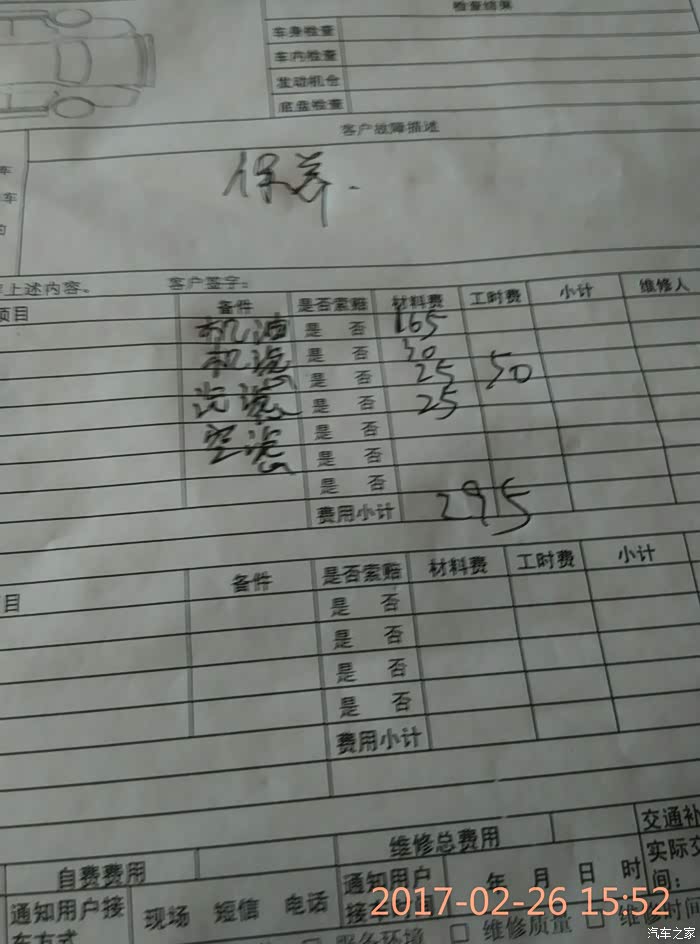 检查结果
车身检查
车内检查
发动机仓
底盘检查
客户故障描述
车
车
的
保养.
上述内容。 客户签字:
项目 备件 是否索赔 材料费 工时费 小计 维修人
机油 是 否 165
机滤 是 否 30
是 否 25 50
汽滤 是 否 25
空滤 是 否
是 否
是 否
费用小计 295
目 备件 是否索赔 材料费 工时费 小计
是 否
是 否
是 否
是 否
费用小计
自费费用 维修总费用 交通补
通知用户接车方式 现场 短信 电话 通知用户 年 月 日 时 实际交
间:
服务环境 □ 维修质量 □ 维修时间
2017-02-26 15:52
汽车之家